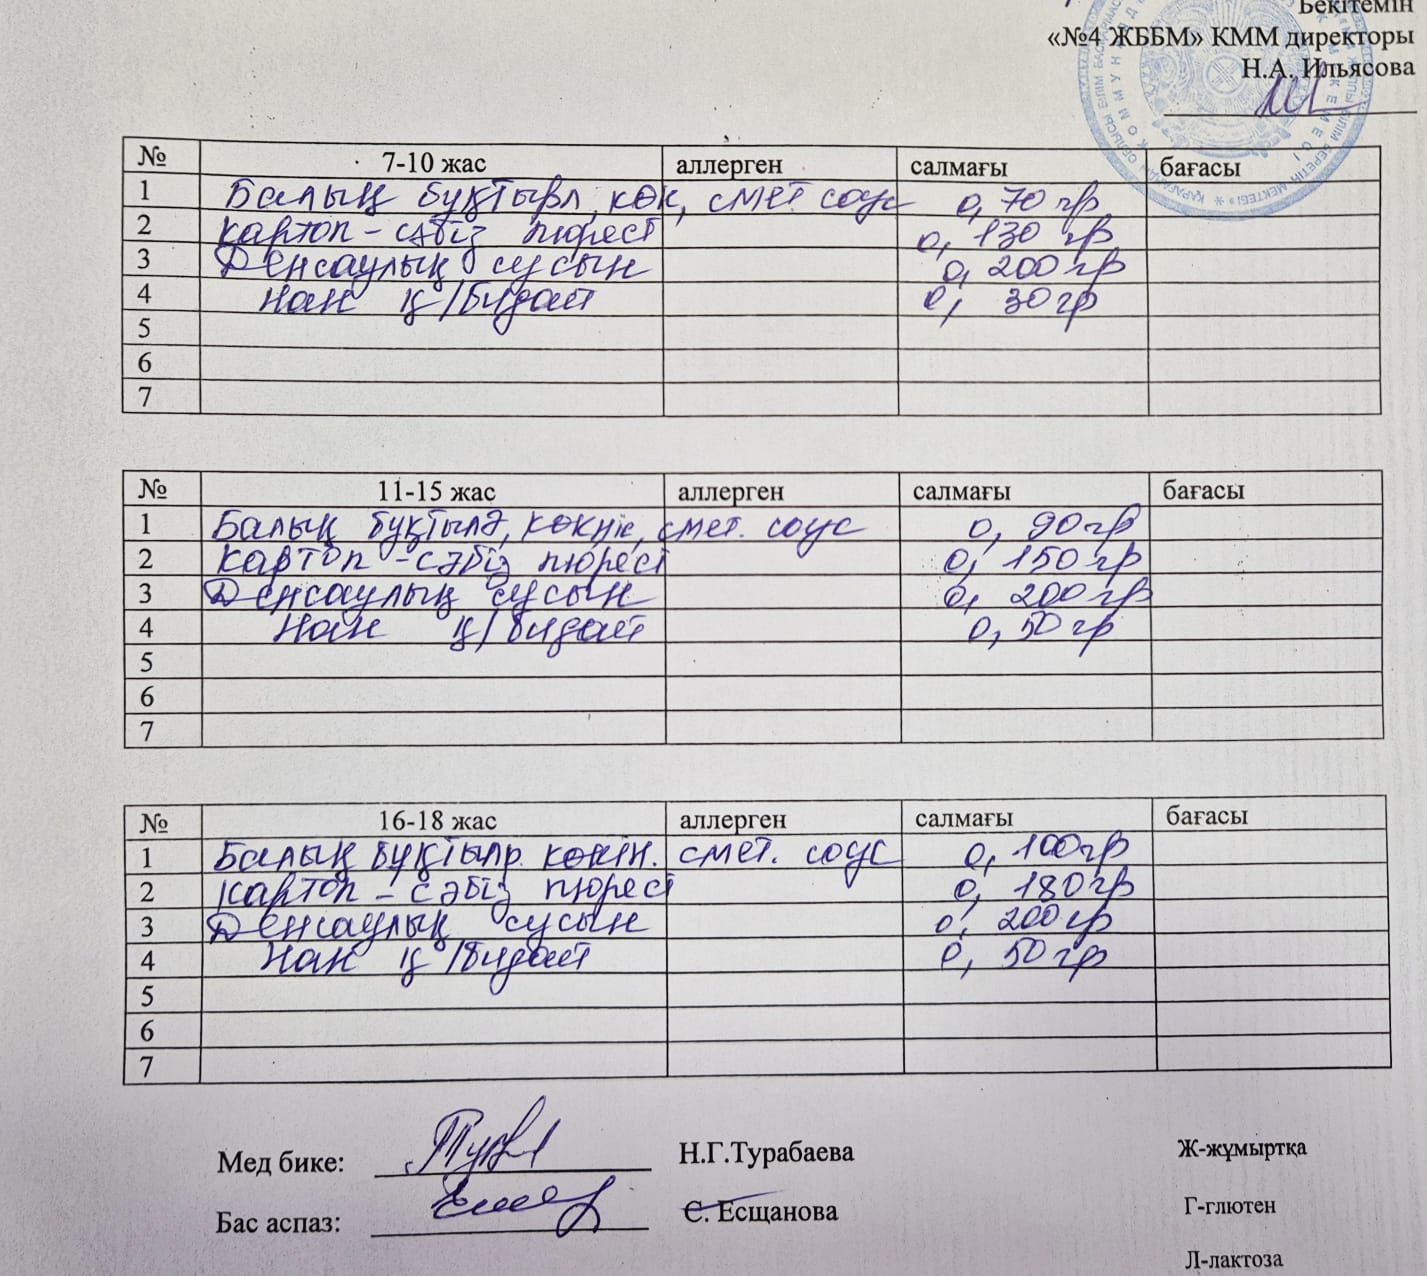 Бекітемін
«№4 ЖББМ» КММ директоры
Н.А. Ильясова
№ 7-10 жас аллерген салмағы бағасы
1 Балық бұқтырл, көк, смет соус 0, 70 гр
2 картоп - сәбіз пюресі 0, 130 гр
3 Денсаулық сусын 0, 200 гр
4 Нан қ/бидай 0, 30 гр
5
6
7
№ 11-15 жас аллерген салмағы бағасы
1 Балық бұқтылд, смет. соус 0, 90 гр
2 картоп - сәбіз пюресі 0, 150 гр
3 Денсаулық сусын 0, 200 гр
4 Нан қ/бидай 0, 50 гр
5
6
7
№ 16-18 жас аллерген салмағы бағасы
1 Балық бұқтылр. смет. соус 0, 100 гр
2 картоп - сәбіз пюресі 0, 180 гр
3 Денсаулық сусын 0, 200 гр
4 Нан қ/бидай 0, 50 гр
5
6
7
Мед бике: Н.Г.Турабаева
Ж-жұмыртқа
Бас аспаз: С. Есщанова
Г-глютен
Л-лактоза